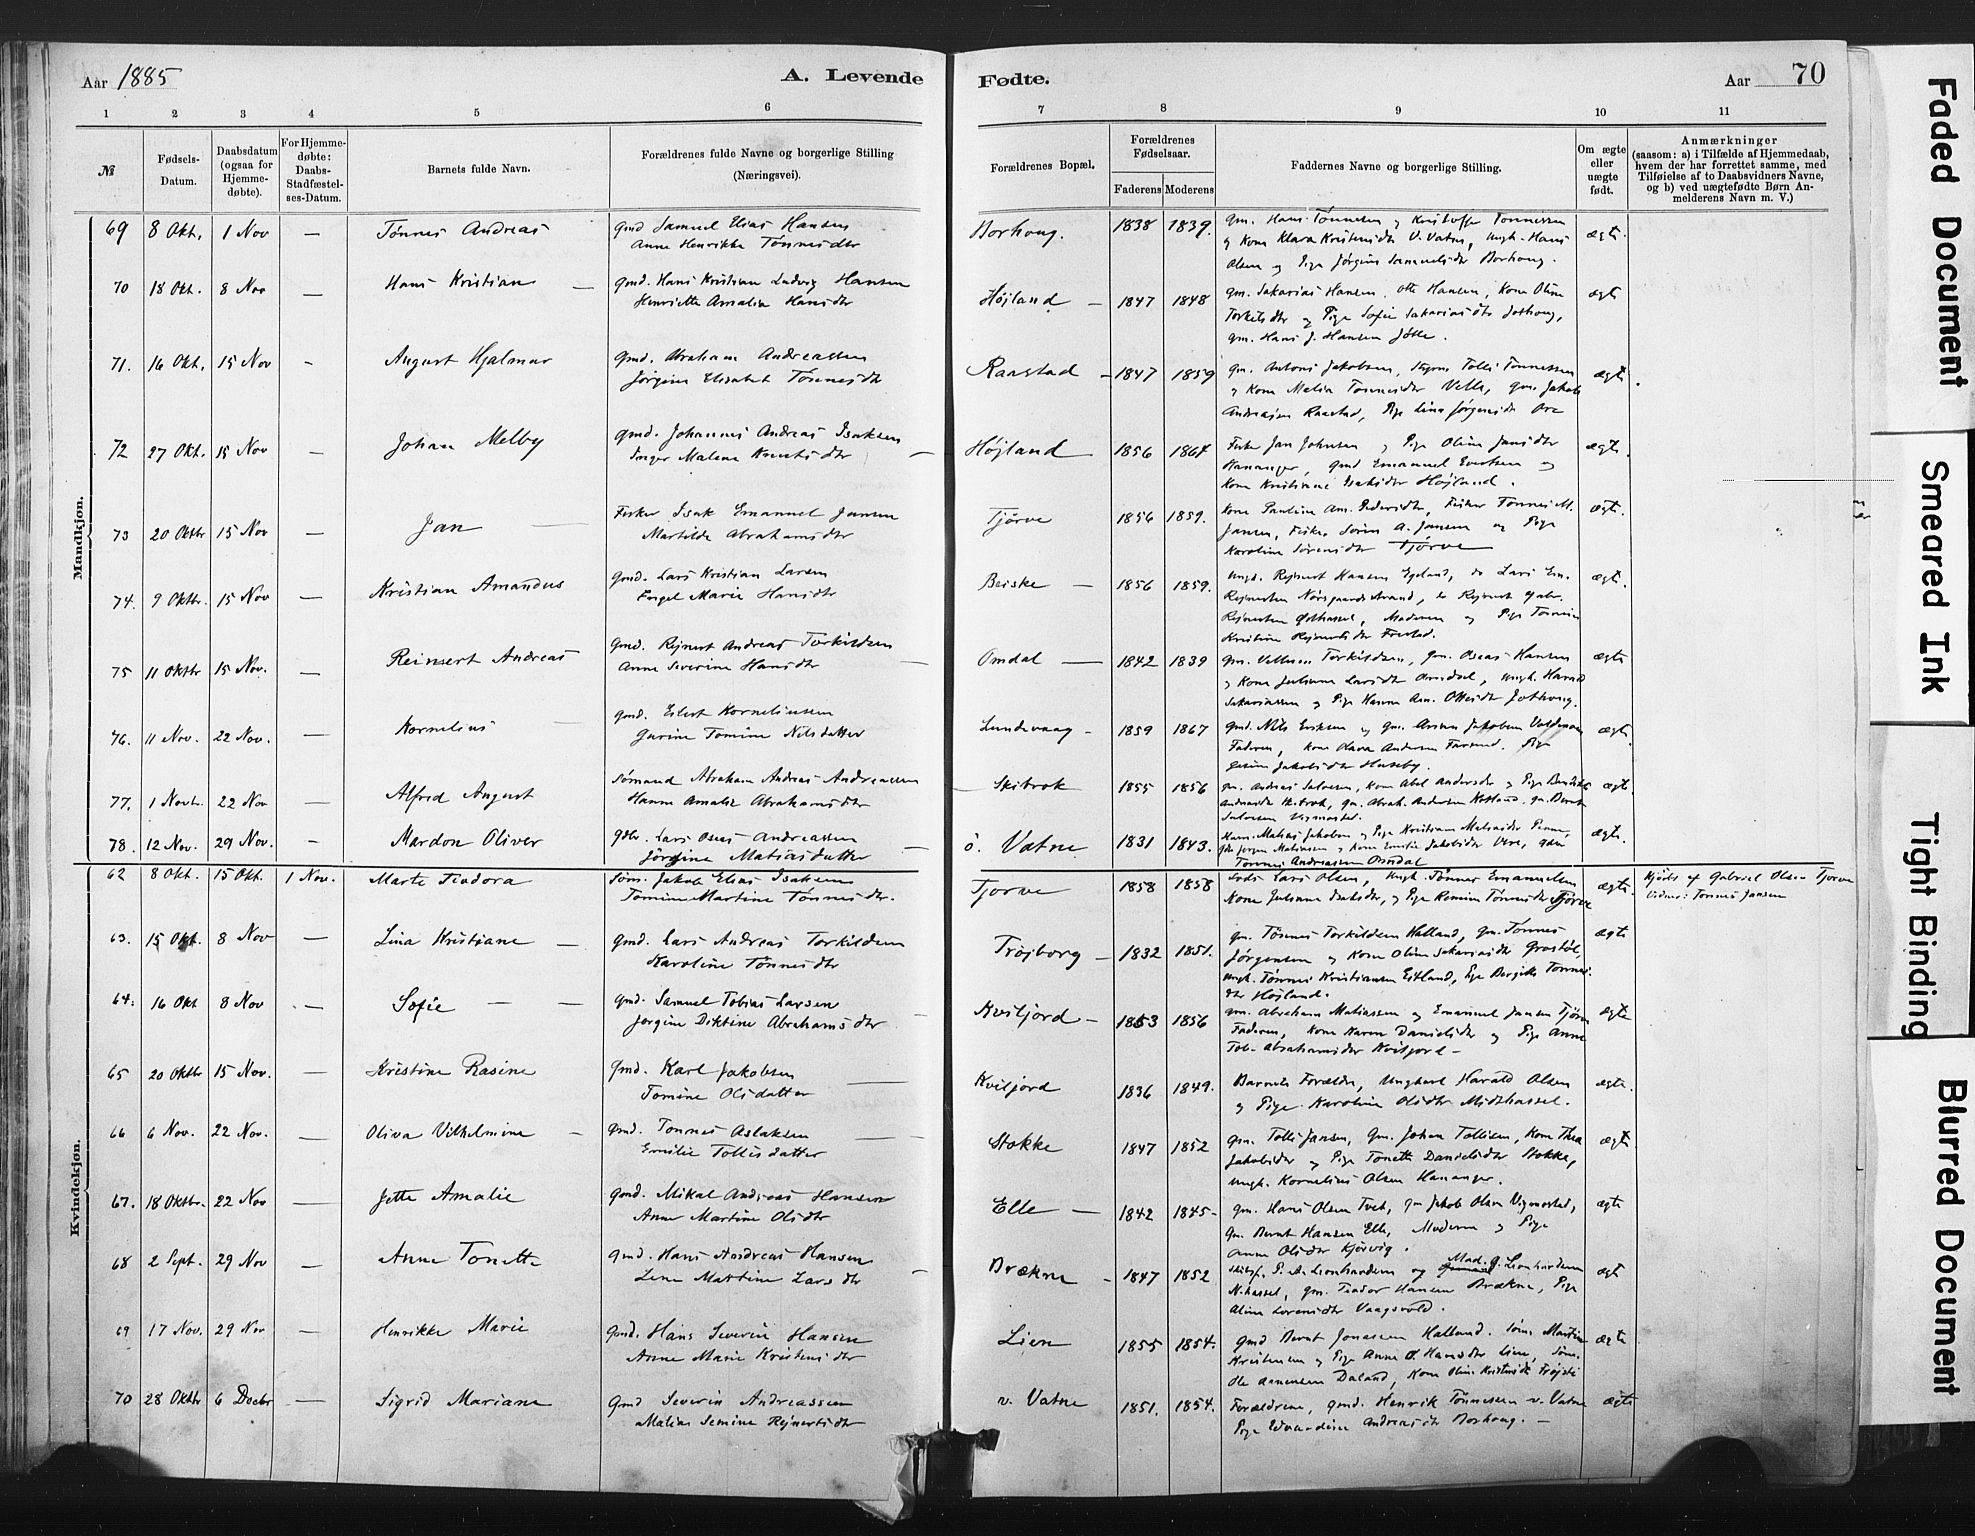 Aar 1885
A. Levende
Fødte.
Aar 70
1 2 3 4 5 6 7 8 9 10 11
№
Fødsels-Datum.
Daabsdatum (ogsaa for Hjemme-døbte).
For Hjemme-døbte: Daabs-Stadfæstel-ses-Datum.
Barnets fulde Navn.
Forældrenes fulde Navne og borgerlige Stilling (Næringsvei).
Forældrenes Bopæl.
Forældrenes Fødselsaar.
Faderens Moderens
Faddernes Navne og borgerlige Stilling.
Om ægte eller uægte født.
Anmærkninger
(saasom: a) i Tilfælde af Hjemmedaab, hvem der har forrettet samme, med Tilføielse af to Daabsvidners Navne, og b) ved uægtefødte Børn An-melderens Navn m. V.)
Mandkjøn.
69 8 Okt. 1 Nov — Tønnes Andreas gmd Samuel Elias Hansen Borhoug. 1838 1839. gm. Hans Tønnesen og Kristoffer Tønnesen ægte.
Anne Henrikke Tønnesdtr og Kone Klara V. Vatne, Ungk. Hans
Olsen og Pige Jørgine Samuelsdtr Borhoug.
70 18 Okt. 8 Nov — Hans Kristian — gmd. Hans Kristian Ludvig Hansen Højland — 1847 1848 gm. Sakarias Hansen, Otte Hansen, Kone Oline ægte
Henriette Amalia Hansdtr Torkelsdtr og Pige Sofie Sakariasdtr Jothoug,
gm. Hans J. Hansen
71. 16 Okt. 15 Nov — August Hjalmar gmd. Abraham Andreassen Raastad — 1847 1859 gm. Antoni Jakobsen, Tollis Tønnessen ægte.
Jørgine Elisabet Tønnesdtr og Kone Malia Tønnesdtr Velle, gm. Jakob
Andreasen Raastad, Pige Lina Jørgensdtr Ore
72 27 Okt. 15 Nov — Johan Melby gmd. Johannes Andreas Isaksen Højland 1856 1864 Fisker Jan Johnsen og Pige Oline Jansdtr ægte.
Inger Malene Knutsdtr — Hananger, gmd Emanuel Evertsen og
Kone Kristiane Isaksdtr Højland.
73 20 Oktbr 15 Nov — Jan — Fisker Isak Emanuel Jansen Tjørve 1856 1859. Kone Pauline Am. Pedersdtr, Fisker Tønnes M. ægte.
Martilde Abrahamsdtr Jansen, Fisker Søren A. Jansen og Pige
Karoline Sørensdtr Tjørve
74. 9 Oktbr. 15 Nov — Kristian Amandus gmd. Lars Kristian Larsen Beiske — 1856 1859. Ungk. Rejnert Hansen Egeland, do Lars Em. ægte.
Engel Marie Hansdtr Rejnertsen Nørsgaardsstrand, do Rejnert Gabr.
Rejnertsen Østhassel, Moderen og Pige Tomine
Kristine Rejnertsdtr Frestad.
75 11 Oktbr 15 Nov. — Reinert Andreas gmd. Rejnert Andreas Torkildsen Omdal — 1842 1839 gm. Torkildsen, gm. Oseas Hansen ægte
Anne Severine Hansdtr — og Kone Juliane Larsdtr Omdal, Ungk. Harald
Sakariassen og Pige Hanne Am. Ottesdtr Jothoug.
76. 11 Nov. 22 Nov. — Kornelius — gmd. Eilert Korneliussen Lundevaag — 1859 1867 gmd. Nils Eriksen og gm. Jakobsen ægte.
Gurine Tomine Nilsdatter Faderen, Kone Olava Andersen Farsund. Pige
Jakobsdtr Huseby.
77. 1 Novb. 22 Nov — Alfred August Sømand Abraham Andreas Andreassen — Skibrok 1855 1856 gm. Andreas Salvesen, Kone Abel Andersdtr og Pige ægte.
Hanne Amalie Abrahamsdtr Skibrok, gm. Abrah. Andersen gm. Bernt
Salvesen Vigmostad.
78. 12 Nov. 29 Nov. — Mardon Oliver gdbr. Lars Oseas Andreassen ö. Vatne 1831 1843. Matias Jakobsen og Pige Kristiane Matiasdtr Penne, ægte.
Jørgine Matiasdatter — Jørgen Matiassen og Kone Emilie Jakobsdtr Vere,
Tønnes Andreassen Omdal
Kvindekjøn.
62 8 Okt. 15 Okt. 1 Nov. Marte Teodora Søm. Jakob Elias Isaksen Tjørve 1858 1858 Lods Lars Olsen, Ungk. Tønnes Emanuelsen ægte. Hjdøbt af Gabriel Olsen Tjørve
Tomine Martine Tønnesdtr. Kone Juliane Isaksdtr, og Pige Tønnesdtr Tjørve Vidne: Tønnes Jansen
63. 15 Okt. 8 Nov — Lina Kristiane — gmd. Lars Andreas Torkildsen Trojborg — 1832 1851. gm. Tønnes Torkildsen Halland, gm. Tønnes ægte
Karoline Tønnesdtr Jørgensen og Kone Oline Sakariasdtr Grostøl,
Ungk. Tønnes Kristiansen Eitland, Pige Bergitte Tønnes-
dtr Højland.
64. 16 Okt 8 Nov — Sofie — — gmd. Samuel Tobias Larsen Kviljord — 1853 1856 gm. Abraham Matiassen og Emanuel Jansen Tjørve ægte
Jørgine Diktine Abrahamsdtr — Faderen, Kone Karen Danielsdtr og Pige Anne
Tob. Abrahamsdtr Kviljord —
65 20 Oktbr 15 Nov. — Kristine Rasine gmd. Karl Jakobsen — Kviljord 1836 1849. Barnets Forældre, Ungkarl Harald Olsen ægte.
Tomine Olsdatter og Pige Karoline Olsdtr Midthassel.
66 6 Nov. 22 Nov. — Oliva Vilhelmine — gmd. Tønnes Aslaksen Stokke 1847 1852 gm. Tollis Jansen, gm. Johan Tollisen, Kone Thea ægte.
Emilie Tollisdatter Jakobsdtr og Pige Tonette Danielsdtr Stokke,
Ungk. Kornelius Olsen Hananger.
67. 18 Oktbr. 22 Nov — Jette Amalie gmd. Mikal Andreas Hansen Elle — 1842 1845 — gm. Hans Olsen Tveit, gm Jakob Olsen Vigmostad, ægte
Anne Martine Olsdtr gm. Bernt Hansen Elle, Moderen og Pige
Anne Olsdtr Kjørvig.
68 2 Sept. 29 Nov — Anne Tonette gmd. Hans Andreas Hansen Brækne — 1847 1852 Skibsf. P. A. Leonhardsen og Mad. G. Leonhardsen ægt
Lene Martine Larsdtr — N. hassel, gm. Teodor Hansen Brækne, Pige
Aline Lorensdtr Vaagsvold.
69 17 Nov. 29 Nov — Henrikke Marie gmd. Hans Severin Hansen Lien 1855 1854. gmd Bernt Jonassen Halland. Søm. Martin ægte
Anne Marie Kristensdtr Kristensen og Pige Anne O. Hansdtr Lien, Søm.
Ole Daland, Kone Oline Kristensdtr
70 28 Oktbr 6 Decbr — Sigrid Mariane gmd Severin Andreassen v. Vatne 1851. 1854. Forældrene, gmd. Henrik Tønnessen v. Vatne ægte
Malias Semine Rejnertsdtr Pige Edvardine Andreasdtr Borhoug. —
Faded Document
Smeared Ink
Tight Binding
Blurred Document